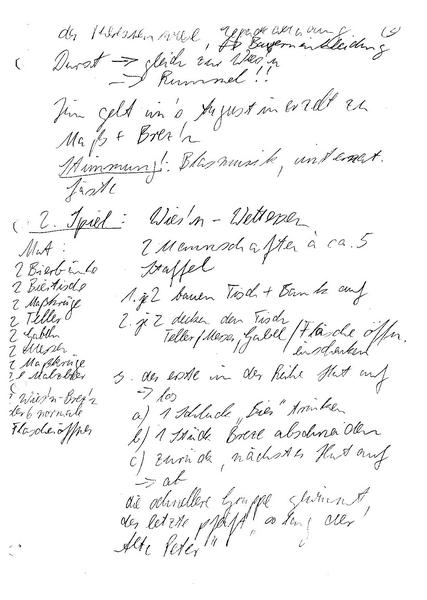 Durst → gleich zur Wies'n
→ Rummel!!
Jim geht in's Augustinerzelt zu
Maß + Brez'n
Stimmung!: Blasmusik, internat.
Gäste
2. Spiel: Wies'n - Wettessen
Mat:
2 Bierbänke
2 Biertische
2 Maßkrüge
2 Teller
2 Gabeln
2 Messer
2 Maßkrüge
2 Malzbier
Wies'n-Brez'n
oder 6 normale
Flaschenöffner
2 Mannschaften à ca. 5
Staffel
1. je 2 bauen Tisch + Bank auf
2. je 2 decken den Tisch
Teller/Messer, Gabel/Flasche öffn.
einschenken
3. der erste in der Reihe Hut auf
→ los
a) 1 Schluck "Bier" trinken
b) 1 Stück Breze abschneiden
c) zurück, nächster Hut auf
→ ab
die schnellere Gruppe gewinnt,
der letzte pfeift "so lang der
Alte Peter"